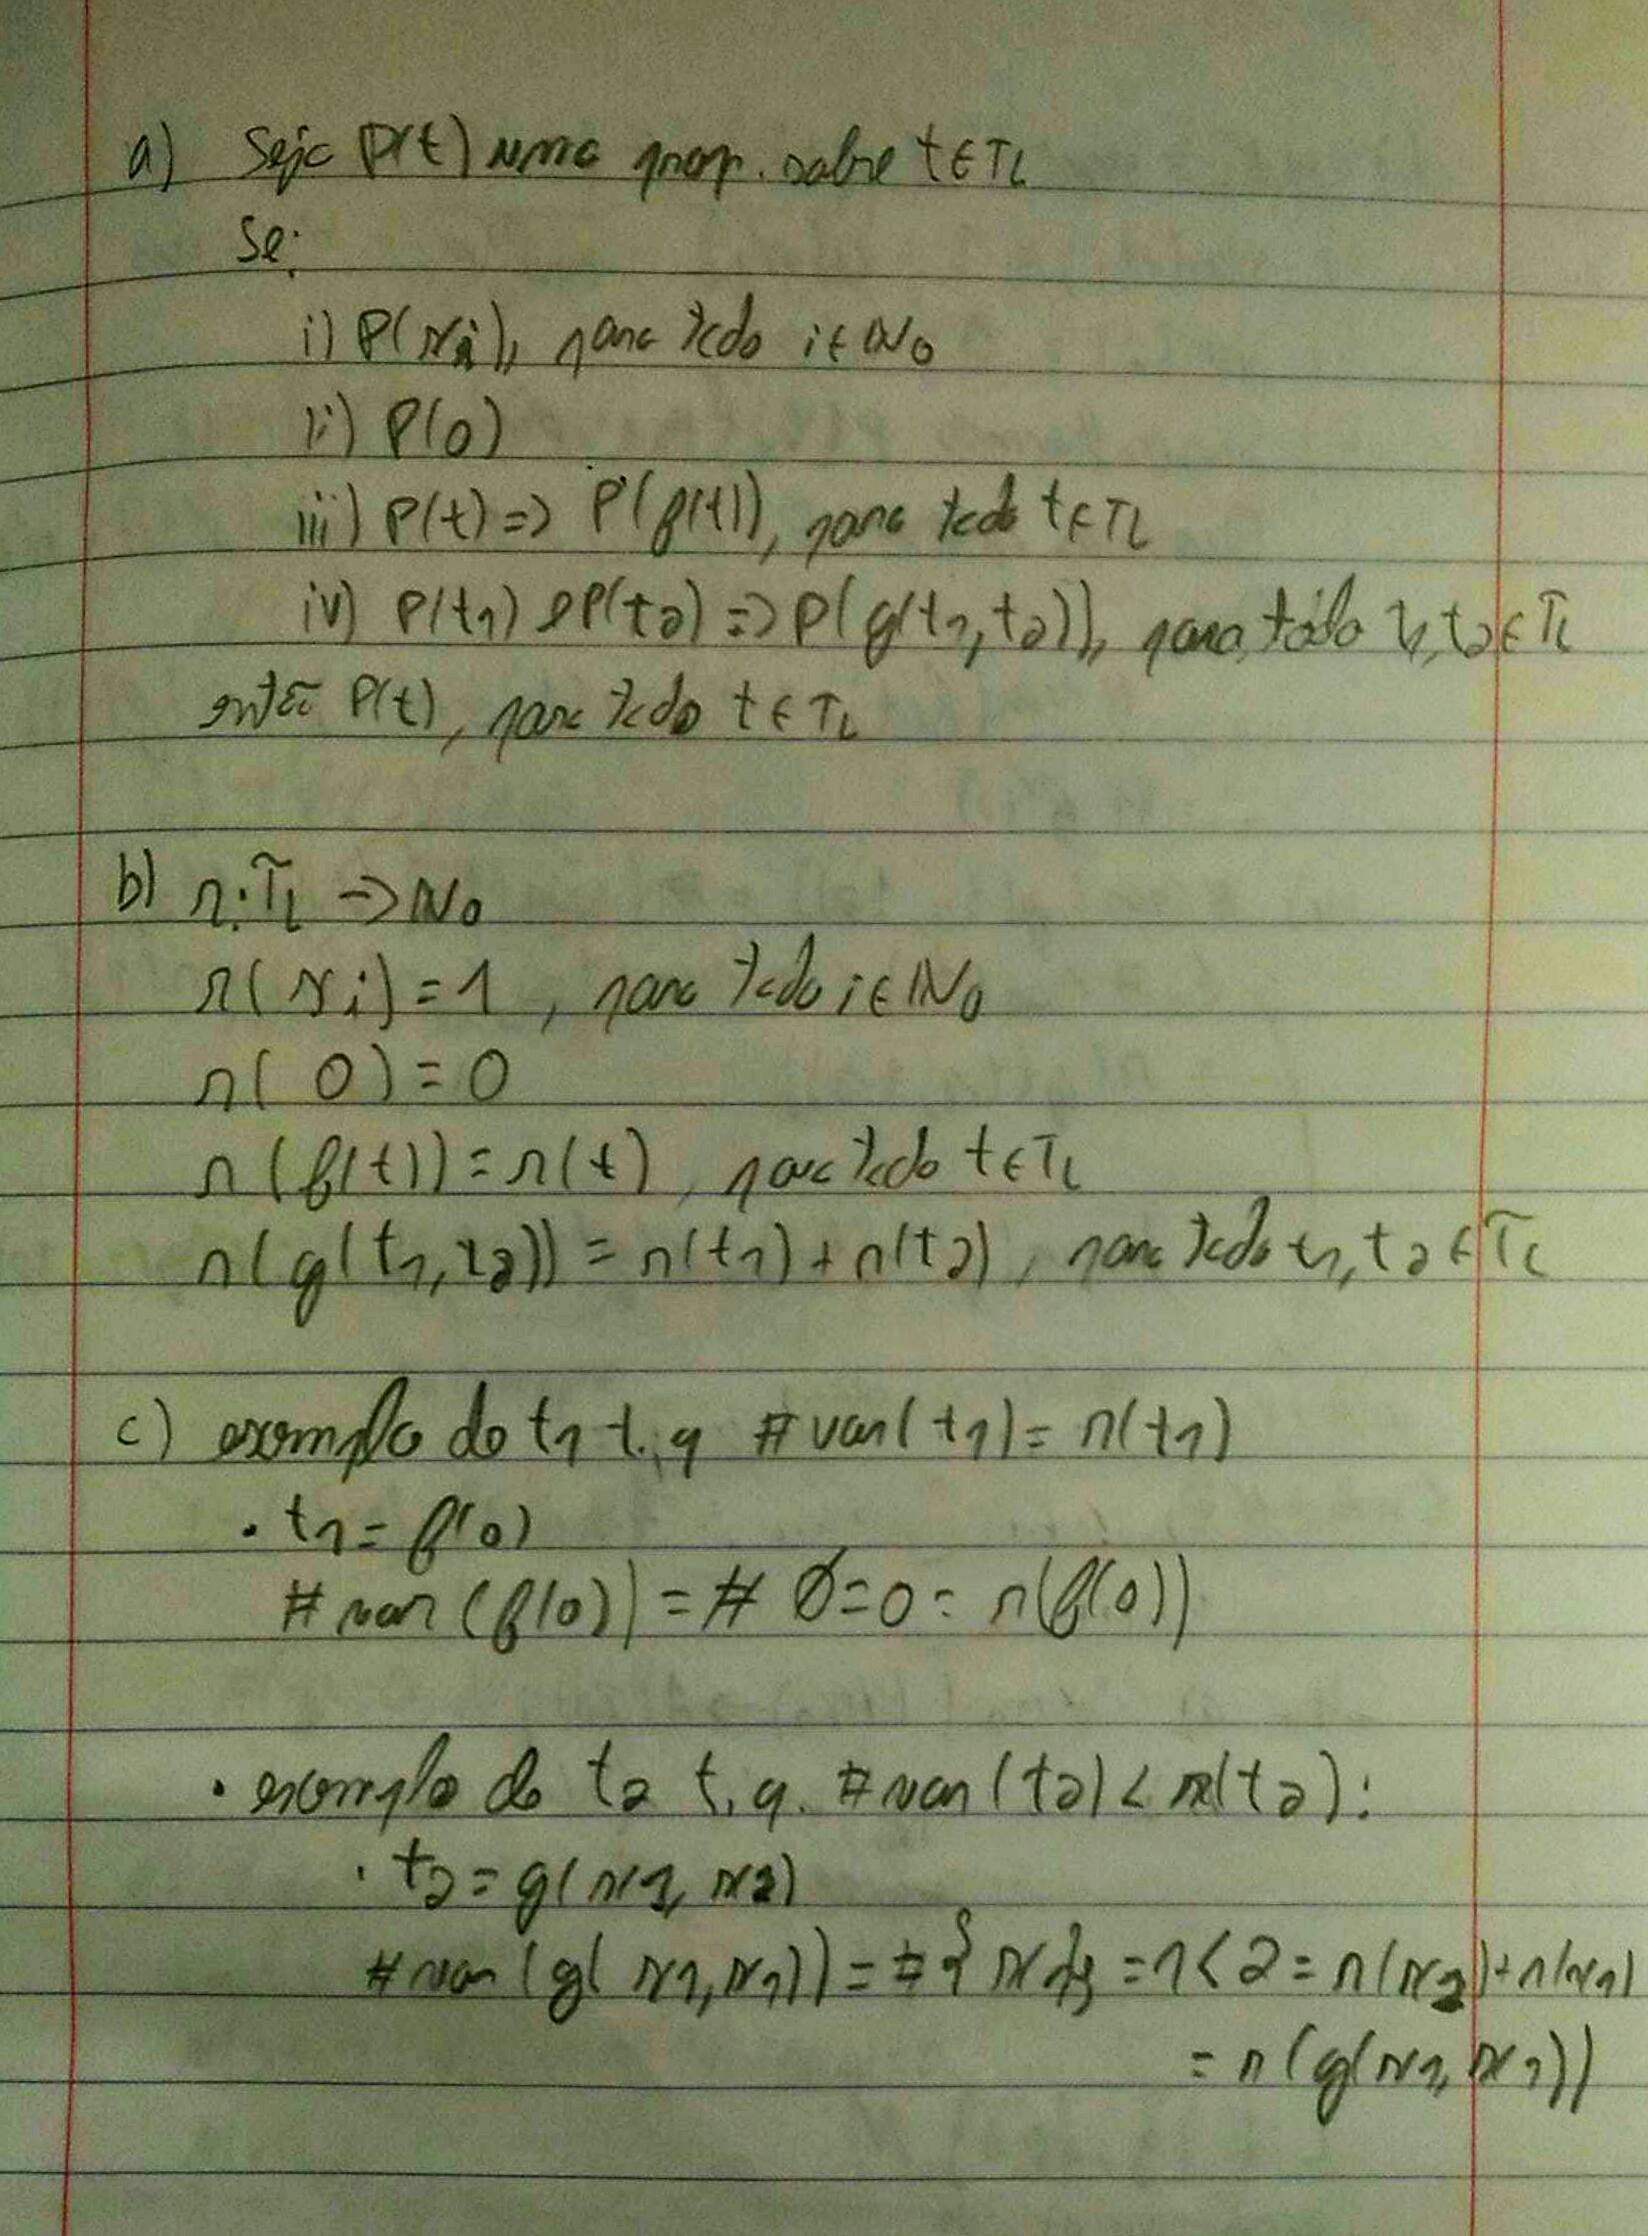 a) Seja P(t) uma prop. sobre t∈TL
Se:
i) P(xi), para todo i∈ℕ0
ii) P(0)
iii) P(t) => P(f(t)), para todo t∈TL
iv) P(t1) e P(t2) => P(g(t1,t2)), para todo t1,t2∈TL
então P(t), para todo t∈TL
b) r:TL -> ℕ0
r(xi)=1, para todo i∈ℕ0
r(0)=0
r(f(t))=r(t), para todo t∈TL
r(g(t1,t2))=r(t1)+r(t2), para todo t1,t2∈TL
c) exemplo de t1 t.q #var(t1)=r(t1)
• t1=f(0)
#var(f(0))=# ∅=0=r(f(0))
• exemplo de t2 t.q. #var(t2)<r(t2):
• t2=g(x1,x1)
#var(g(x1,x1))=#{x1}=1<2=r(x1)+r(x1)
=r(g(x1,x1))